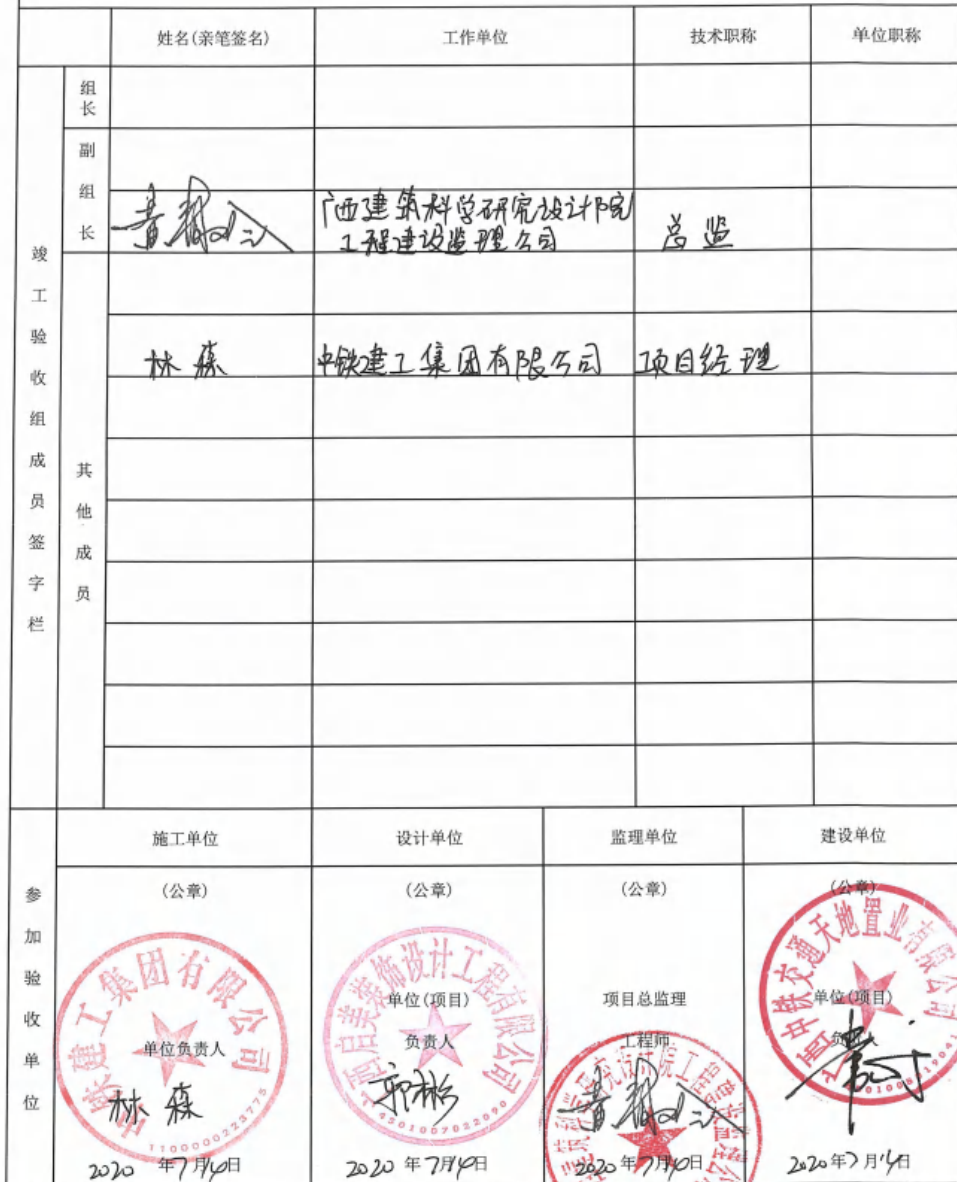 姓名(亲笔签名) 工作单位 技术职称 单位职称
竣工验收组成员签字栏
组长
副组长
广西建筑科学研究设计院
工程建设监理公司
总监
其他成员
林森 中铁建工集团有限公司 项目经理
参加验收单位
施工单位 设计单位 监理单位 建设单位
(公章) (公章) (公章) (公章)
中铁建工集团有限公司
单位负责人
林森
1100000223775
2020年7月14日
启美装饰设计工程有限公司
单位(项目)
负责人
4501007022090
2020年7月14日
项目总监理
工程师
2020年7月14日
中铁交通天地置业有限公司
单位(项目)
负责人
2020年7月14日